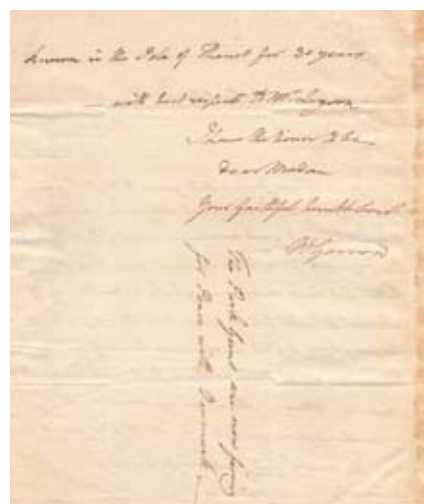 known in the Isle of Thanet for 30 years
with best respects to Mr
I have the honor to be
Dear Madam
Your faithful humble Servt
The Park Guns are now firing
for Peace with Denmark